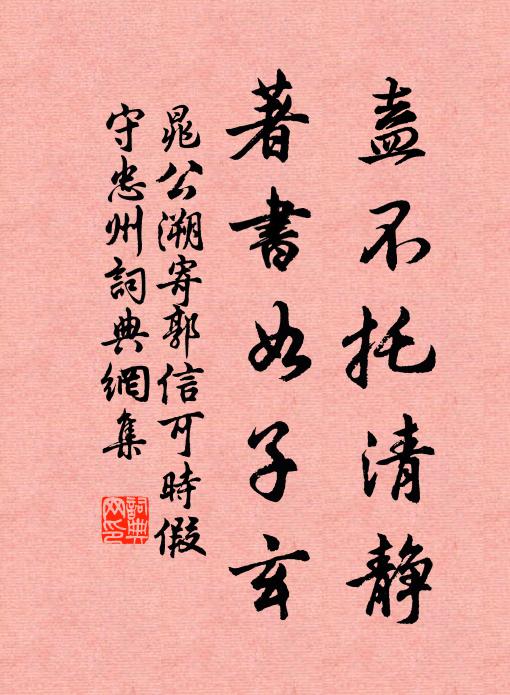 盍不托清静
著書如子玄
晁公溯寄郭信可時假
守忠州詞典網集
詞典网印